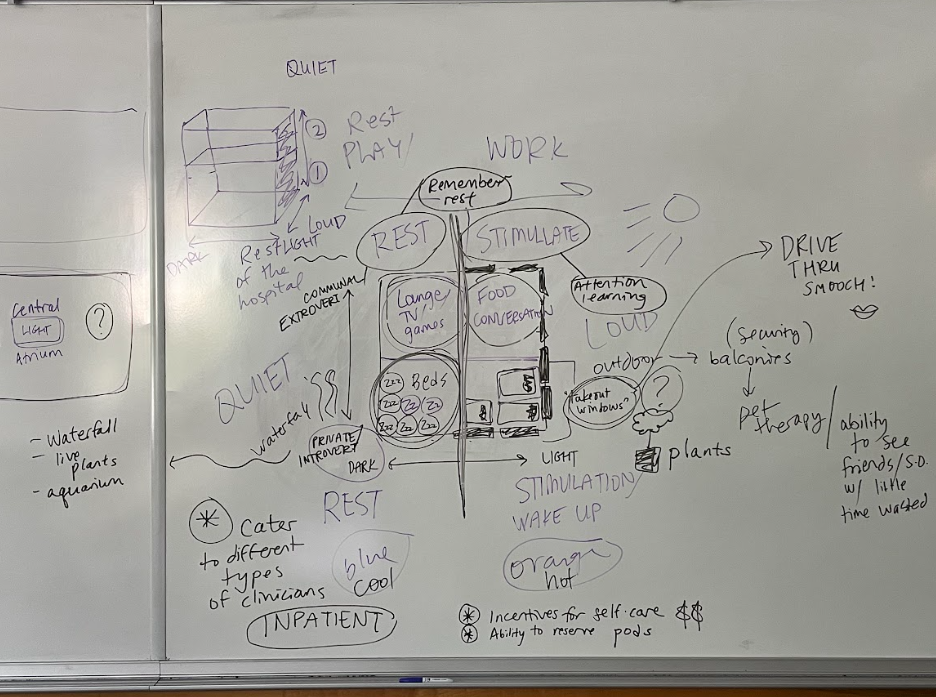 QUIET
2
1
Rest
PLAY/
WORK
Remember
rest
REST
STIMULLATE
DARK
LIGHT
LOUD
Rest
of the
hospital
COMMUNAL
EXTROVERT
Lounge
TV
games
FOOD
CONVERSATION
Attention
learning
LOUD
DRIVE
THRU
SMOOCH!
Central
LIGHT
Atrium
?
QUIET
waterfall
zzz
Beds
zzz
zzz
zz
zzz
zz
zz
outdoor
(security)
balconies
"takeout
windows"
?
plants
pet
therapy/
ability
to see
friends/S.O.
w/ little
time wasted
PRIVATE
INTROVERT
DARK
LIGHT
- Waterfall
- live
plants
- aquarium
REST
STIMULATION
WAKE UP
* Cater
to different
types
of clinicians
blue
cool
orange
hot
INPATIENT
* Incentives for self-care $$
* Ability to reserve pods